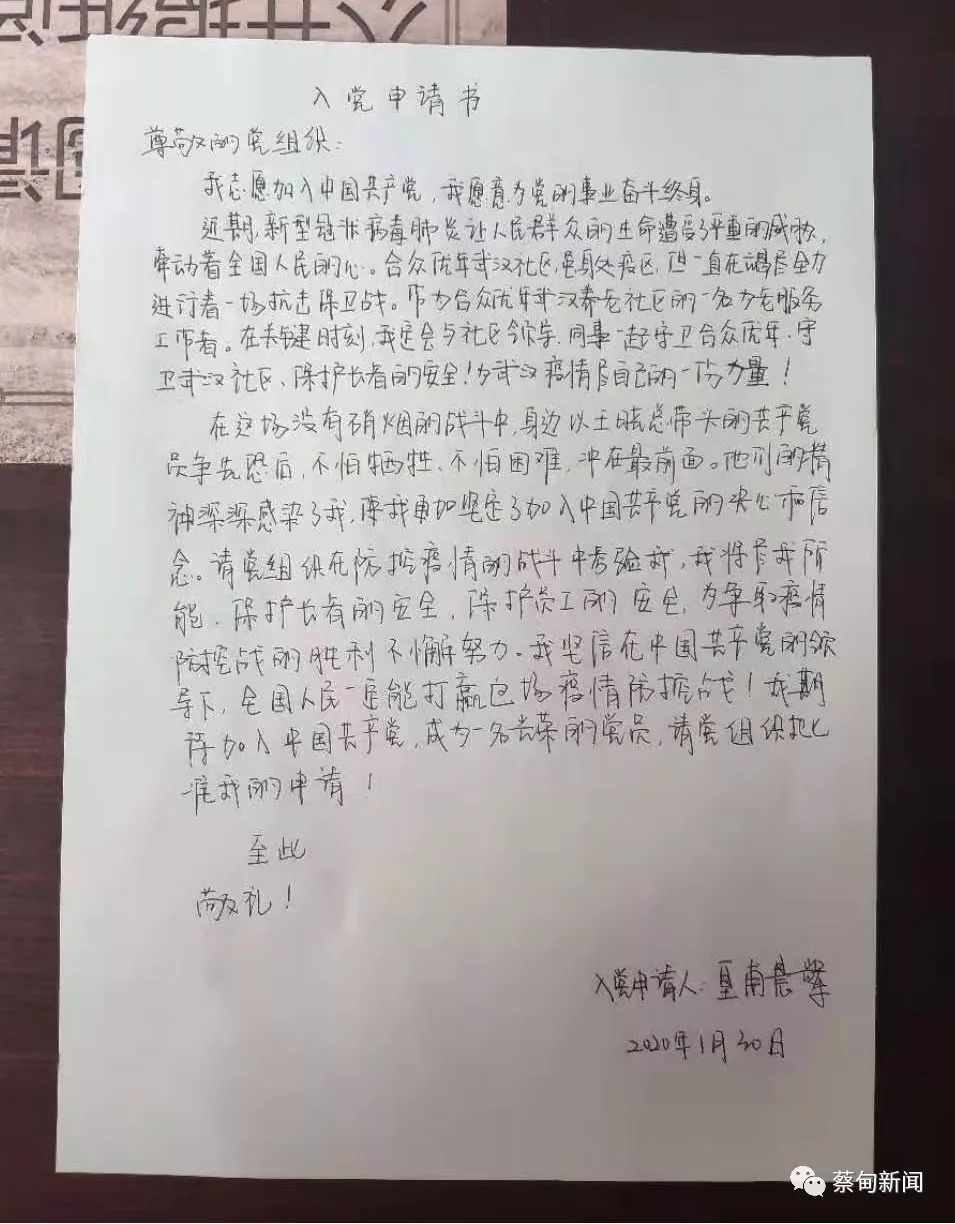 入党申请书
尊敬的党组织：
我志愿加入中国共产党，我愿意为党的事业奋斗终身。
近期，新型冠状病毒肺炎让人民群众的生命遭受了严重的威胁，
牵动着全国人民的心。合众优年武汉社区，虽身处疫区，但一直在竭尽全力
进行着一场抗击保卫战。作为合众优年武汉养老社区的一名为老服务
工作者。在关键时刻，我定会与社区领导、同事一起守卫合众优年、守
卫武汉社区、保护长者的安全！为武汉疫情尽自己的一份力量！
在这场没有硝烟的战斗中，身边以王晓总带头的共产党
员争先恐后，不怕牺牲、不怕困难，冲在最前面。他们的精
神深深感染了我，使我更加坚定了加入中国共产党的决心和信
念。请党组织在防控疫情的战斗中考验我，我将尽我所
能，保护长者的安全，保护员工的安全，为争取疫情
防控战的胜利不懈努力。我坚信在中国共产党的领
导下，全国人民一定能打赢这场疫情防控战！我期
待加入中国共产党，成为一名光荣的党员，请党组织批
准我的申请！
至此
敬礼！
入党申请人：皇甫晨
2020年1月30日
蔡甸新闻